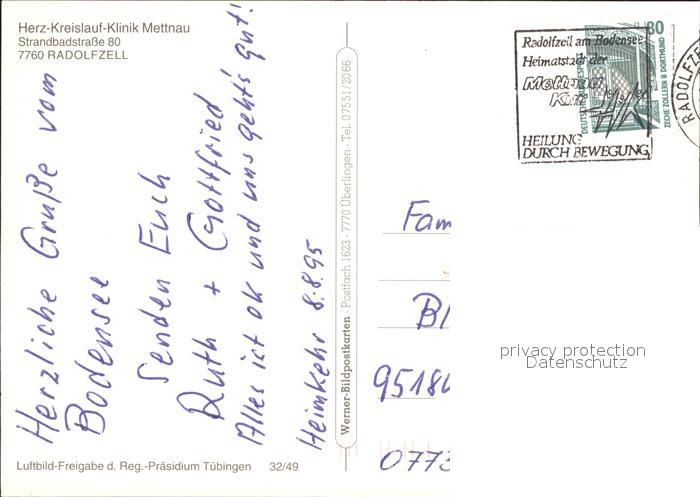 Herz-Kreislauf-Klinik Mettnau
Strandbadstraße 80
7760 RADOLFZELL
Herzliche Grüße vom
Bodensee
Senden Euch
Ruth + Gottfried
Alles ist ok und uns geht's gut!
Heimkehr 8.8.95
Luftbild-Freigabe d. Reg.-Präsidium Tübingen 32/49
Werner-Bildpostkarten · Postfach 1623 · 7770 Überlingen · Tel. 07551/2066
Radolfzell am Bodensee
Heimatstadt der
Mettnau
Kur
HEILUNG
DURCH BEWEGUNG
80
DEUTSCHE BUNDESPOST
ZECHE ZOLLERN II DORTMUND
RADOLFZE
Fam
Bl
9518
privacy protection
Datenschutz
0773